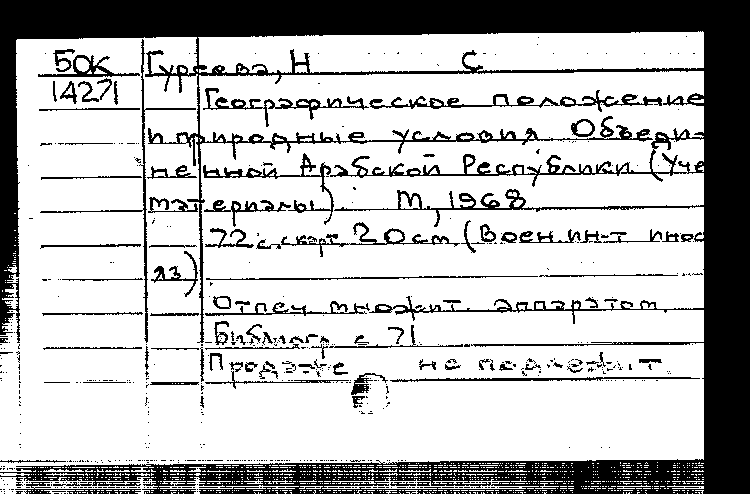 БОК Гуреева, Н С
14271 Географическое положение
и природные условия Объеди-
ненной Арабской Республики (Уче
материалы). М, 1968
72 с, с карт. 20 см. (Воен. ин-т инос
яз).
Отпеч множит. аппаратом.
Библиогр с 71
Продаже не подлежит.